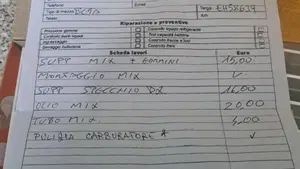 Telefono
Tipo di mezzo Beverly Targa EH58679
Telaio
Riparazione o preventivo
Pressione gomme Controllo liquido refrigerante
Controllo livelli liquidi Test capacità batteria
Ingrassaggio Controllo frecce e luci
Serraggio bulloneria Controllo freni
Scheda lavori Euro
SUPP MIX + GOMMINI 15,00
MONTAGGIO MIX ✓
SUPP SPECCHIO DX 16,00
OLIO MIX 20,00
TUBO MIX 4,00
PULIZIA CARBURATORE * ✓